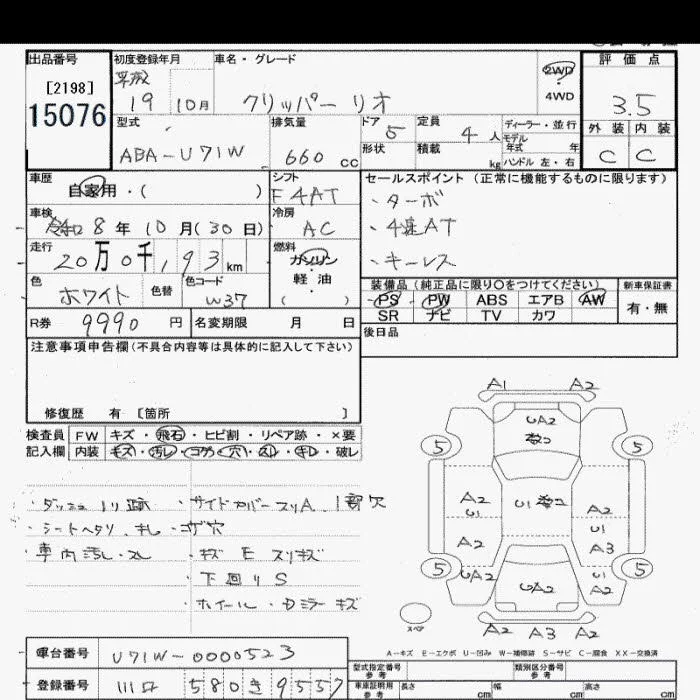 出品番号
[2198]
15076
初度登録年月
平成
19 10月
車名・グレード
クリッパー リオ
2WD
4WD
評価点
3.5
外装 内装
C C
型式
ABA-U71W
排気量
660 cc
ドア 5
形状
定員 4 人
積載 kg
ディーラー・並行
モデル
年式 年
ハンドル 左・右
車歴
自家用・( )
シフト
F4AT
セールスポイント (正常に機能するものに限ります)
・ターボ
・4速AT
・キーレス
車検
令和 8 年 10 月(30 日)
冷房
AC
走行
20万0千,193 km
燃料
ガソリン
軽油
( )
色
ホワイト
色替
色コード
W37
装備品 (純正品に限り○をつけてください)
新車保証書
PS PW ABS エアB AW
SR ナビ TV カワ
有・無
R券 9990 円
名変期限 月 日
後日品
注意事項申告欄(不具合内容等は具体的に記入して下さい)
修復歴 有 〔箇所 〕
検査員
記入欄
FW キズ・飛石・ヒビ割・リペア跡・×要
内装 キズ・汚レ・コゲ・穴・スレ・キレ・破レ
・ダッシュ ノリ跡
・シートヘタリ、キレ・コゲ穴
・車内汚レ・スレ
・サイドカバー スリA、1部欠
・キズ E スリキズ
・下回り S
・ホイール・Dミラー キズ
A1 A2
UA2
5 5
A2
U1
U1
A2
U1
A2
A3
5 5
UA2
UA2
U1
A2
スペア
A2 A3 A2
A-キズ E-エクボ U-凹み W-補修跡 S-サビ C-腐食 XX-交換済
車台番号
U71W-0000523
登録番号
580 き 9557
型式指定番号
参考
類別区分番号
参考
車庫証明用
参考
長さ cm
幅 cm
高さ cm